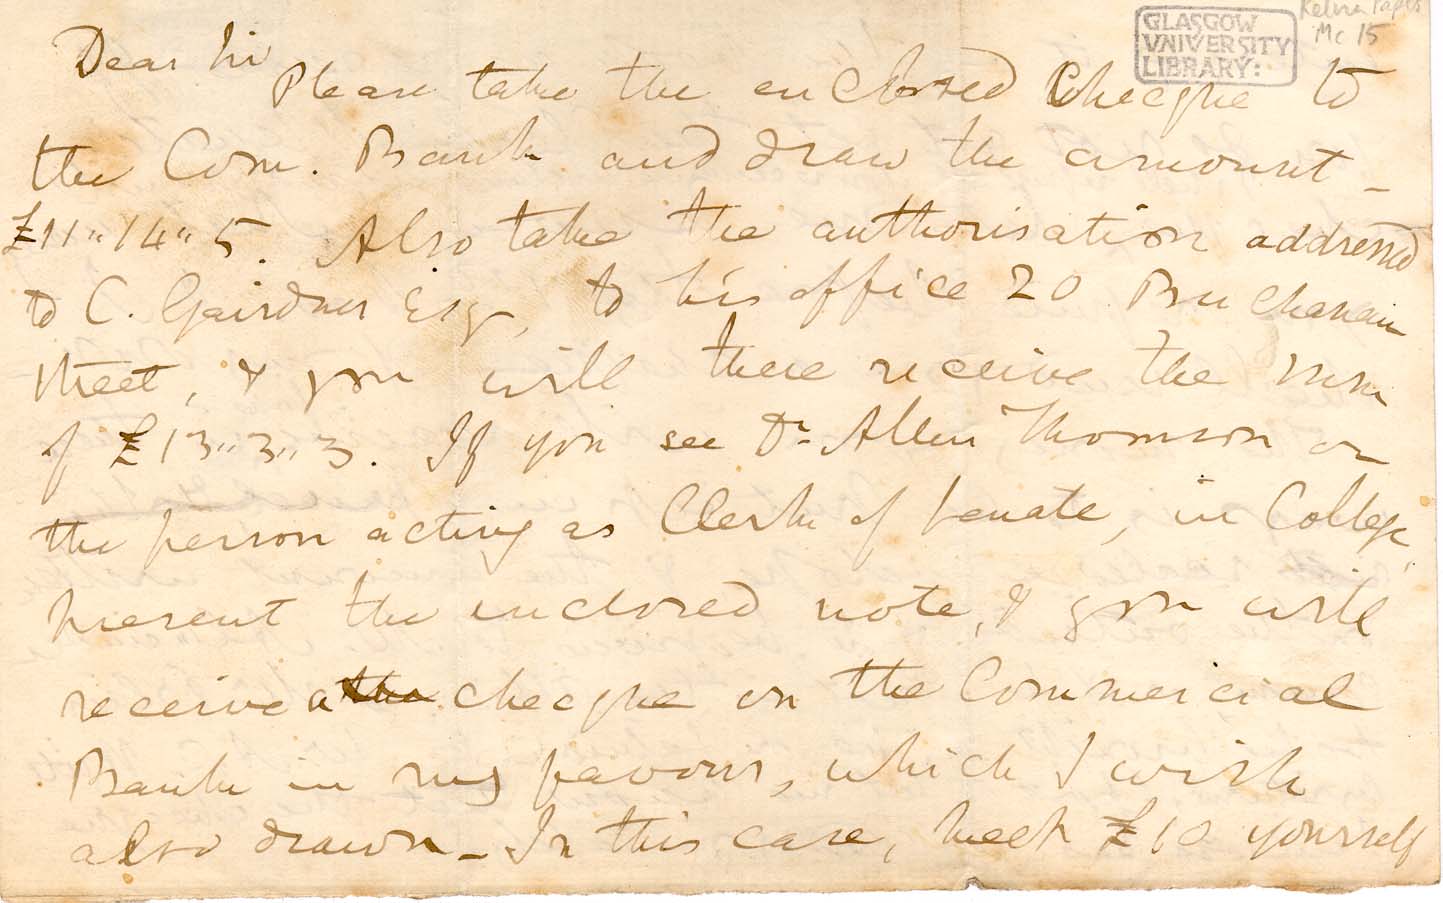 GLASGOW
UNIVERSITY
LIBRARY:
Kelvin Papers
Mc 15
Dear Sir
Please take the enclosed checque to
the Com. Bank and draw the amount –
£11"14"5. Also take the authorisation addressed
to C. Gairdner Esq, to his office 20 Buchanan
Street, & you will there receive the sum
of £13"3"3. If you see Dr Allen Thomson or
the person acting as Clerk of Senate, in College,
present the enclosed note, & you will
receive a the checque on the Commercial
Bank in my favour, which I wish
also drawn – In this case, keep £10 yourself